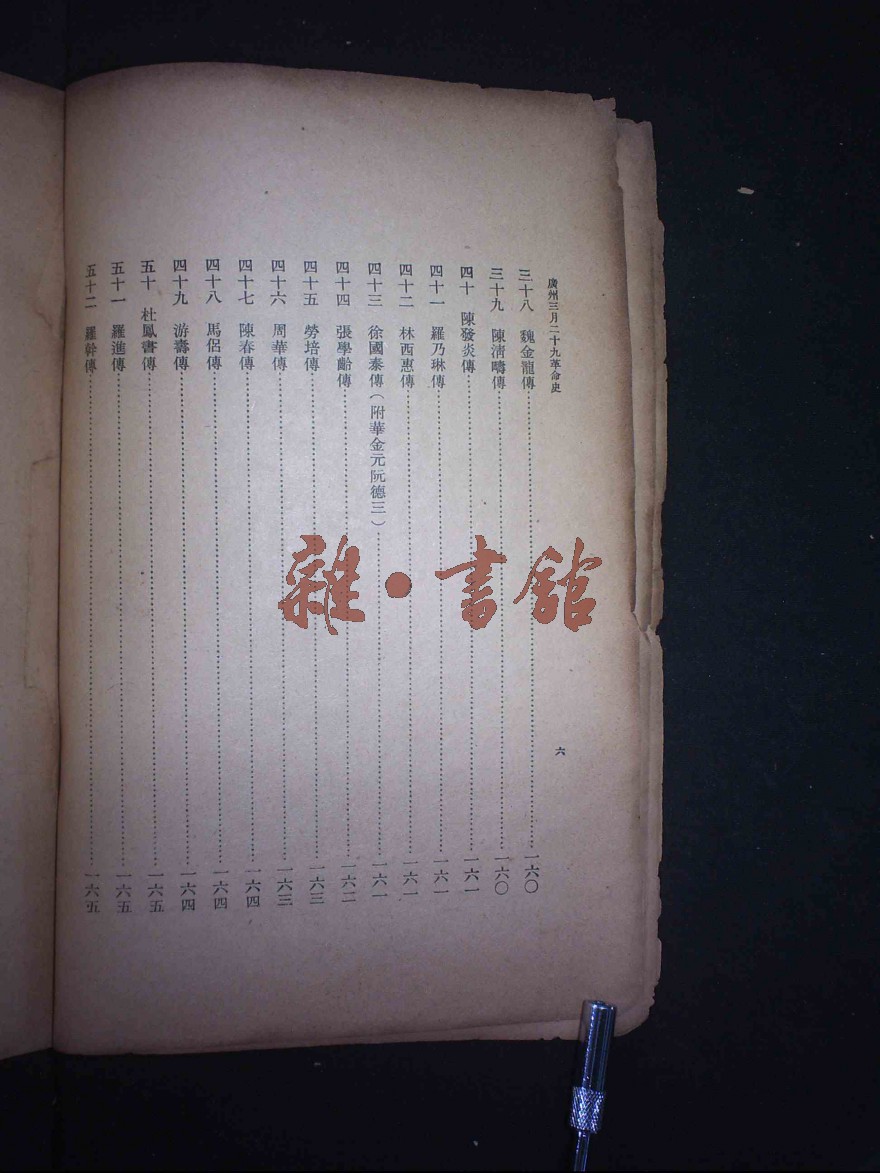 廣州三月二十九革命史
三十八 魏金龍傳……一六〇
三十九 陳淸疇傳……一六〇
四十 陳發炎傳……一六一
四十一 羅乃琳傳……一六一
四十二 林西惠傳……一六一
四十三 徐國泰傳(附華金元阮德三)……一六一
四十四 張學齡傳……一六二
四十五 勞培傳……一六三
四十六 周華傳……一六三
四十七 陳春傳……一六四
四十八 馬侶傳……一六四
四十九 游壽傳……一六四
五十 杜鳳書傳……一六五
五十一 羅進傳……一六五
五十二 羅幹傳……一六五
六
雜·書館